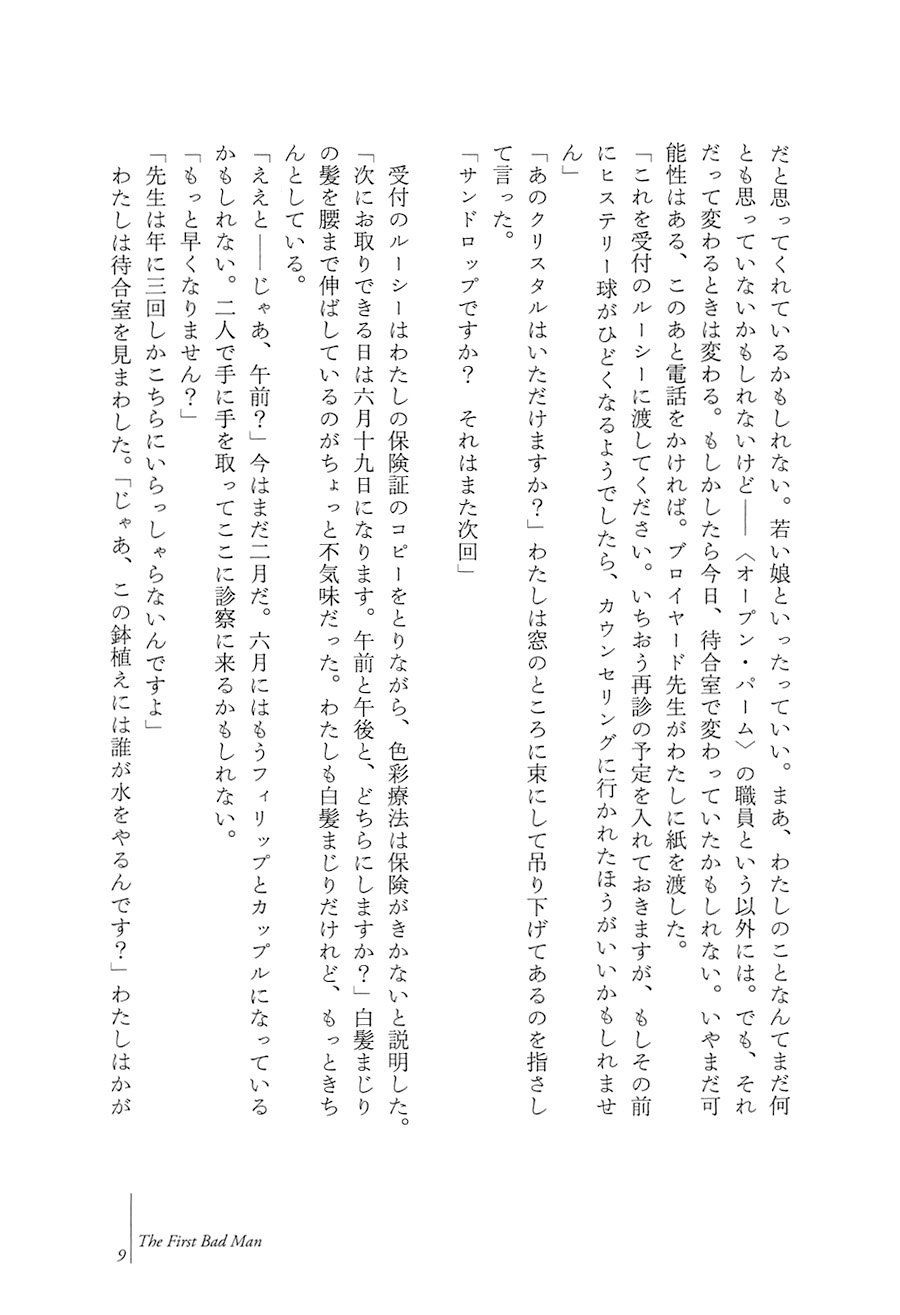 だと思ってくれているかもしれない。若い娘といったっていい。まあ、わたしのことなんてまだ何
とも思っていないかもしれないけど――〈オープン・パーム〉の職員という以外には。でも、それ
だって変わるときは変わる。もしかしたら今日、待合室で変わっていたかもしれない。いやまだ可
能性はある、このあと電話をかければ。ブロイヤード先生がわたしに紙を渡した。
「これを受付のルーシーに渡してください。いちおう再診の予定を入れておきますが、もしその前
にヒステリー球がひどくなるようでしたら、カウンセリングに行かれたほうがいいかもしれませ
ん」
「あのクリスタルはいただけますか？」わたしは窓のところに束にして吊り下げてあるのを指さし
て言った。
「サンドロップですか？　それはまた次回」
受付のルーシーはわたしの保険証のコピーをとりながら、色彩療法は保険がきかないと説明した。
「次にお取りできる日は六月十九日になります。午前と午後と、どちらにしますか？」白髪まじり
の髪を腰まで伸ばしているのがちょっと不気味だった。わたしも白髪まじりだけれど、もっときち
んとしている。
「ええと――じゃあ、午前？」今はまだ二月だ。六月にはもうフィリップとカップルになっている
かもしれない。二人で手に手を取ってここに診察に来るかもしれない。
「もっと早くなりません？」
「先生は年に三回しかこちらにいらっしゃらないんですよ」
わたしは待合室を見まわした。「じゃあ、この鉢植えには誰が水をやるんです？」わたしはかが
9 The First Bad Man